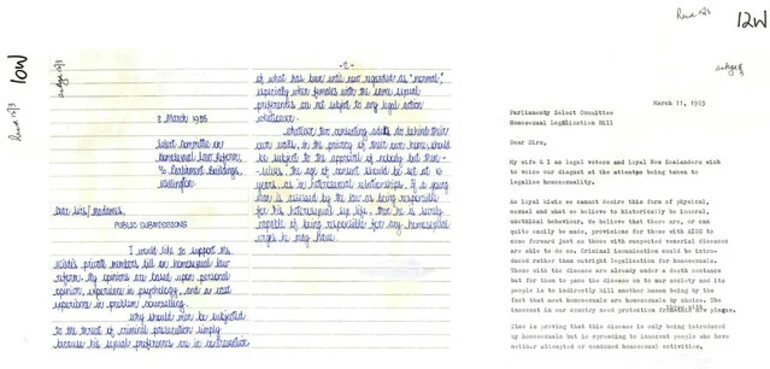 Recd 15/3
10W
8 March 1985
Select Committee on
Homosexual Law Reform,
c/o Parliament Buildings,
Wellington.
Dear Sirs/Madames,
PUBLIC SUBMISSIONS
I would like to support Ms
Wilde's private members bill on homosexual law
reform. My opinions are based upon personal
opinion, experience in psychology, and as
experience in problem counselling.
Why should men be subjected
to the threat of criminal prosecution simply
because his sexual preferences are in contravention
-2-
of what has been until now regarded as "normal",
especially when females with the same sexual
preferences are not subject to any legal action
whatsoever.
Whatever two consenting adults do behind their
own walls, in the privacy of their own home, should
be subject to the approval of nobody but them-
selves. The age of consent should be set at 16
years, as in heterosexual relationships. If a young
man is assessed by the law as being responsible
for his heterosexual sex life, then he is surely
capable of being responsible for any homosexual
urges he may have.
Recd 15/3
12W
March 11, 1985
Parliamenty Select Committee
Homosexual Legalization Bill
Dear Sirs,
My wife & I as legal voters and loyal New Zealanders wish
to voice our disgust at the attempt being taken to
legalize homosexuality.
As loyal kiwis we cannot desire this form of physical,
sexual and what we believe to historically be immoral,
unethical behaviour. We believe that there are, or can
quite easily be made, provisions for those with AIDS to
come forward just as those with suspected venerial diseases
are able to do so. Criminal immunication could be intro-
duced rather than outright legalisation for homosexuals.
Those with the disease are already under a death sentence
but for them to pass the disease on to our society and its
people is to indirectly kill another human being by the
fact that most homosexuals are homosexuals by choice. The
innocent in our country need protection from this new plague.
Time is proving that this disease is only being introduced
by homosexuals but is spreading to innocent people who have
neither attempted or condoned homosexual activities.